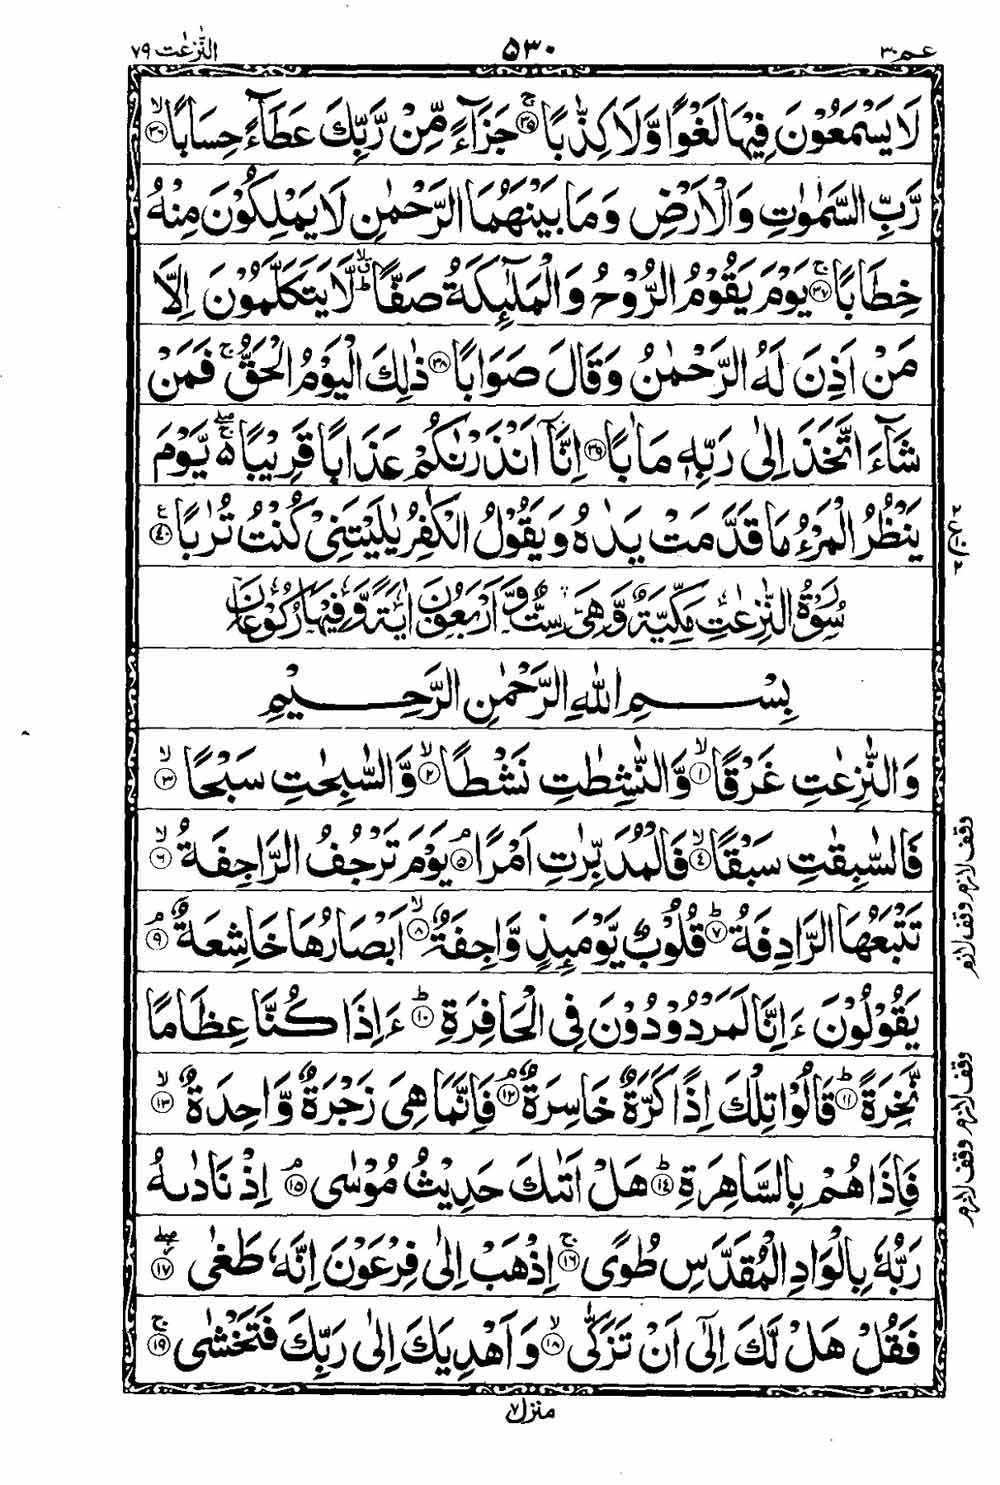 عم ٣٠ ٥٣٠ النّٰزعٰت ٧٩
لَا يَسْمَعُوْنَ فِيْهَا لَغْوًا وَّلَا كِذّٰبًا ۚ﴿٣٥﴾ جَزَآءً مِّنْ رَّبِّكَ عَطَآءً حِسَابًا ۙ﴿٣٦﴾
رَّبِّ السَّمٰوٰتِ وَالْاَرْضِ وَمَا بَيْنَهُمَا الرَّحْمٰنِ لَا يَمْلِكُوْنَ مِنْهُ
خِطَابًا ۚ﴿٣٧﴾ يَوْمَ يَقُوْمُ الرُّوْحُ وَالْمَلٰٓئِكَةُ صَفًّا ؕۙ لَّا يَتَكَلَّمُوْنَ اِلَّا
مَنْ اَذِنَ لَهُ الرَّحْمٰنُ وَقَالَ صَوَابًا ﴿٣٨﴾ ذٰلِكَ الْيَوْمُ الْحَقُّ ۚ فَمَنْ
شَآءَ اتَّخَذَ اِلٰى رَبِّهٖ مَاٰبًا ﴿٣٩﴾ اِنَّاۤ اَنْذَرْنٰكُمْ عَذَابًا قَرِيْبًا ۖۚ۬ يَّوْمَ
يَنْظُرُ الْمَرْءُ مَا قَدَّمَتْ يَدٰهُ وَيَقُوْلُ الْكٰفِرُ يٰلَيْتَنِيْ كُنْتُ تُرٰبًا ﴿٤٠﴾ ع
سُوْرَةُ النّٰزِعٰتِ مَكِّيَّةٌ وَّهِيَ سِتٌّ وَّاَرْبَعُوْنَ اٰيَةً وَّفِيْهَا رُكُوْعَانِ
بِسْمِ اللّٰهِ الرَّحْمٰنِ الرَّحِيْمِ
وَالنّٰزِعٰتِ غَرْقًا ۙ﴿١﴾ وَّالنّٰشِطٰتِ نَشْطًا ۙ﴿٢﴾ وَّالسّٰبِحٰتِ سَبْحًا ۙ﴿٣﴾
فَالسّٰبِقٰتِ سَبْقًا ۙ﴿٤﴾ فَالْمُدَبِّرٰتِ اَمْرًا ۘ﴿٥﴾ يَوْمَ تَرْجُفُ الرَّاجِفَةُ ۙ﴿٦﴾
تَتْبَعُهَا الرَّادِفَةُ ؕ﴿٧﴾ قُلُوْبٌ يَّوْمَئِذٍ وَّاجِفَةٌ ۙ﴿٨﴾ اَبْصَارُهَا خَاشِعَةٌ ۘ﴿٩﴾
يَقُوْلُوْنَ ءَاِنَّا لَمَرْدُوْدُوْنَ فِي الْحَافِرَةِ ؕ﴿١٠﴾ ءَاِذَا كُنَّا عِظَامًا
نَّخِرَةً ؕ﴿١١﴾ قَالُوْا تِلْكَ اِذًا كَرَّةٌ خَاسِرَةٌ ۘ﴿١٢﴾ فَاِنَّمَا هِيَ زَجْرَةٌ وَّاحِدَةٌ ۙ﴿١٣﴾
فَاِذَا هُمْ بِالسَّاهِرَةِ ؕ﴿١٤﴾ هَلْ اَتٰىكَ حَدِيْثُ مُوْسٰى ۘ﴿١٥﴾ اِذْ نَادٰىهُ
رَبُّهٗ بِالْوَادِ الْمُقَدَّسِ طُوًى ۚ﴿١٦﴾ اِذْهَبْ اِلٰى فِرْعَوْنَ اِنَّهٗ طَغٰى ۖ﴿١٧﴾
فَقُلْ هَلْ لَّكَ اِلٰۤى اَنْ تَزَكّٰى ۙ﴿١٨﴾ وَاَهْدِيَكَ اِلٰى رَبِّكَ فَتَخْشٰى ۚ﴿١٩﴾
منزل ٧
٢ ع ٢
وقف لازم
وقف لازم
وقف لازم
وقف لازم